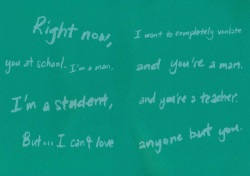 Right now,
I want to completely violate
you at school. I'm a man.
and you're a man.
I'm a student,
and you're a teacher.
But... I can't love
anyone but you.